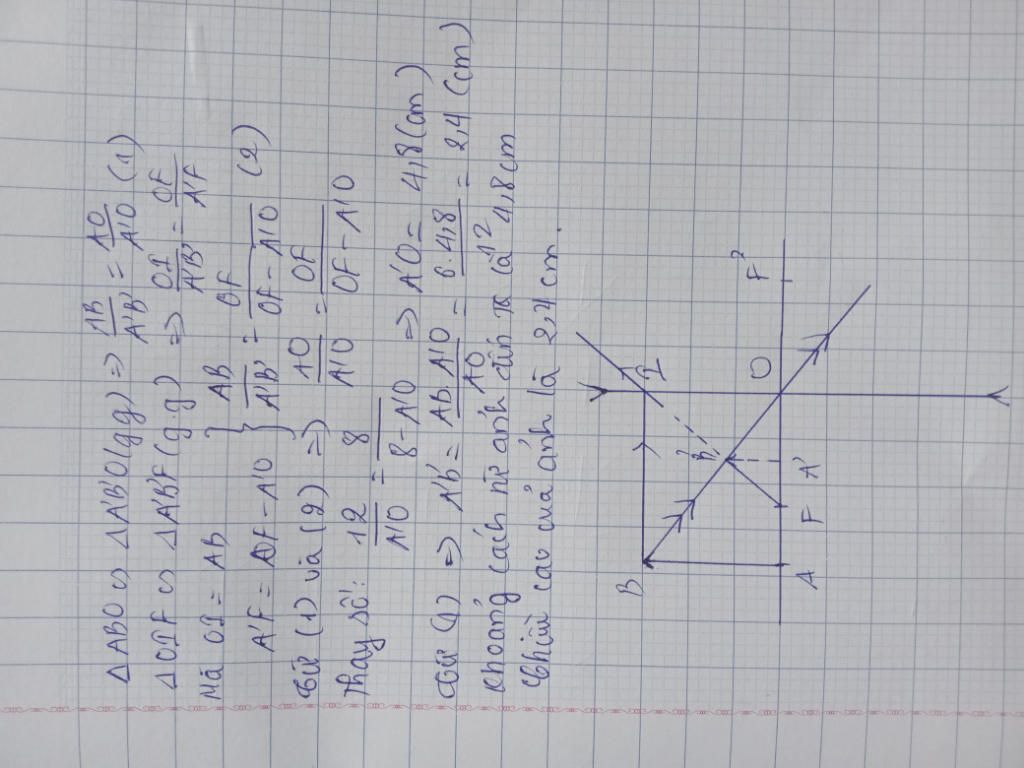 ∆ABO ∽ ∆A'B'O (g.g) => AB/A'B' = AO/A'O (1)
∆OIF ∽ ∆A'B'F (g.g) => OI/A'B' = OF/A'F
Mà OI = AB
A'F = OF - A'O } AB/A'B' = OF/(OF - A'O) (2)
Từ (1) và (2) => AO/A'O = OF/(OF - A'O)
Thay số: 12/A'O = 8/(8 - A'O) => A'O = 4,8 (cm)
Từ (1) => A'B' = AB. A'O/AO = 6.4,8 = 2,4 (cm)
12
Khoảng cách từ ảnh đến TK là 4,8cm
Chiều cao của ảnh là 2,4 cm.
B
I
B'
O
F'
A
F
A'